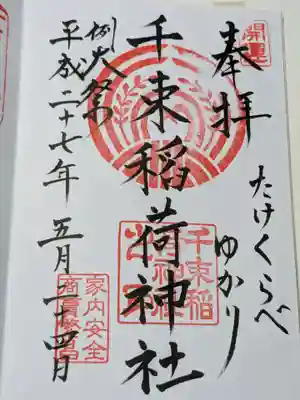 開運
奉拝
たけくらべ
ゆかり
千束稲荷神社
例大祭
平成二十七年五月二十四日
家内安全
商売繁昌